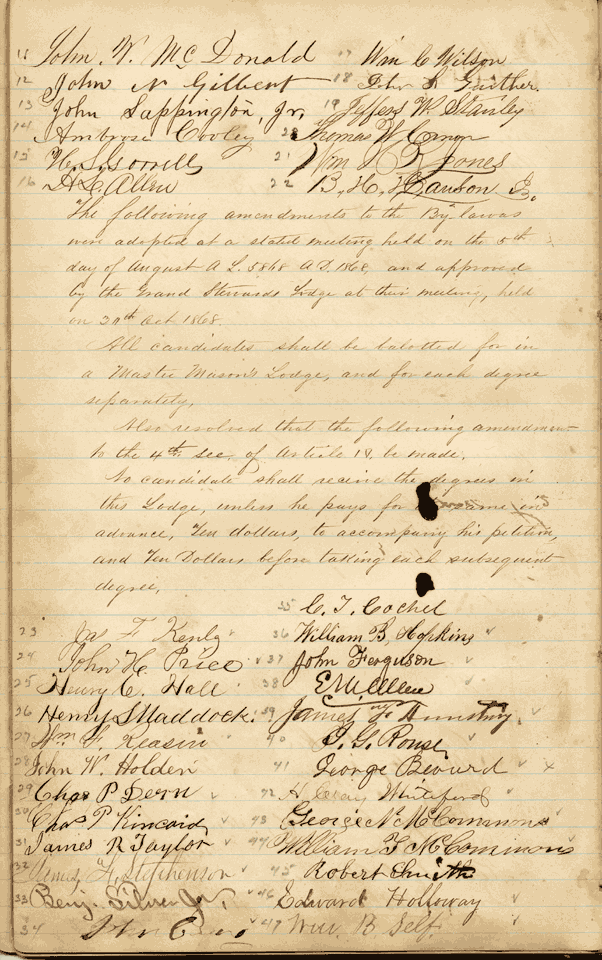 11 John W. McDonald
17 Wm C Wilson
12 John N Gilbert
18 John S
13 John Sappington, Jr.
19 Jeffers W Stanley
14 Ambrose Cooley
20 Thomas W
15
21 Wm Jones
16 H C Allen
22 B. H. Hanson Jr.
The following amendments to the By-laws
were adopted at a stated meeting held on the 5th
day of August A L. 5868 A D. 1868, and approved
by the Grand Stewards Lodge at their meeting, held
on 30th Oct 1868.
All candidates shall be balotted for in
a Master Mason's Lodge, and for each degree
separately.
Also resolved that the following amendment
to the 4th sec, of Article 18, be made.
No candidate shall receive the degrees in
this Lodge, unless he pays for same in
advance, Ten dollars, to accompany his petition,
and Ten Dollars before taking each subsequent
degree,
35 C. T. Cochel
23 Jas F Kenly
36 William B. Hopkins
24 John H. Price
37 John Ferguson
25 Henry C. Hall
38
26 Henry S Maddock.
39 James
27 Wm S.
40 Rouse
28 John W. Holden
41 George Bevard
29 Chas P Dern
42 H Clay Whiteford
30 Chas P Kincaid
43 George N. McCommons
31 James R Taylor
44 William F McCommons
32 James H. Stephenson
45 Robert Smith
33 Benj. Silver Jr.
46 Edward Holloway
34 John
47 Wm. B Self.